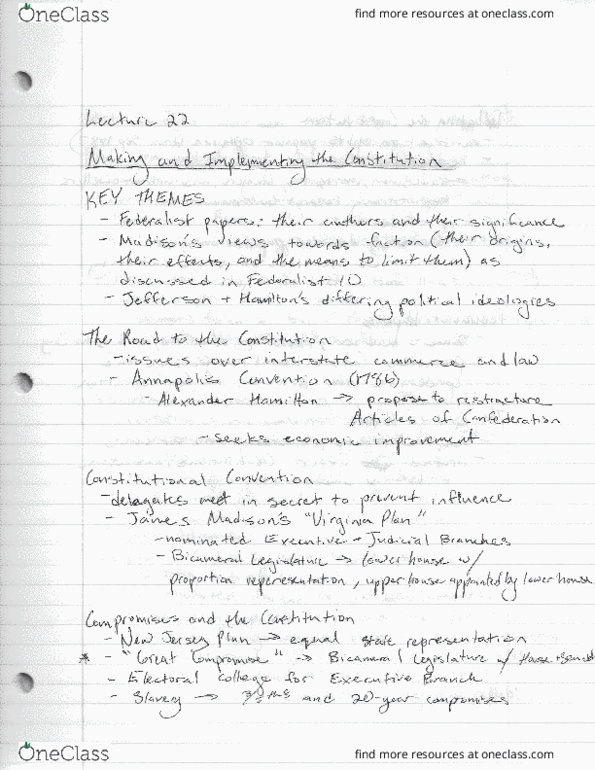 OneClass
find more resources at oneclass.com
Lecture 22
Making and Implementing the Constitution
KEY THEMES
- Federalist papers: their authors and their significance
- Madison's views towards faction (their origins,
their effects, and the means to limit them) as
discussed in Federalist 10
- Jefferson + Hamilton's differing political ideologies
The Road to the Constitution
- issues over interstate commerce and law
- Annapolis Convention (1786)
- Alexander Hamilton → propose to restructure
Articles of Confederation
- seeks economic improvement
Constitutional Convention
- delegates meet in secret to prevent influence
- James Madison's "Virginia Plan"
- nominated Executive + Judicial Branches
- Bicameral Legislature → lower house w/
proportion representation, upper house appointed by lower house
Compromises and the Constitution
- New Jersey Plan → equal state representation
* - "Great Compromise" → Bicameral Legislature w/ House +
- Electoral College for Executive Branch
- Slavery → 3/5ths and 20-year compromises
OneClass
find more resources at oneclass.com